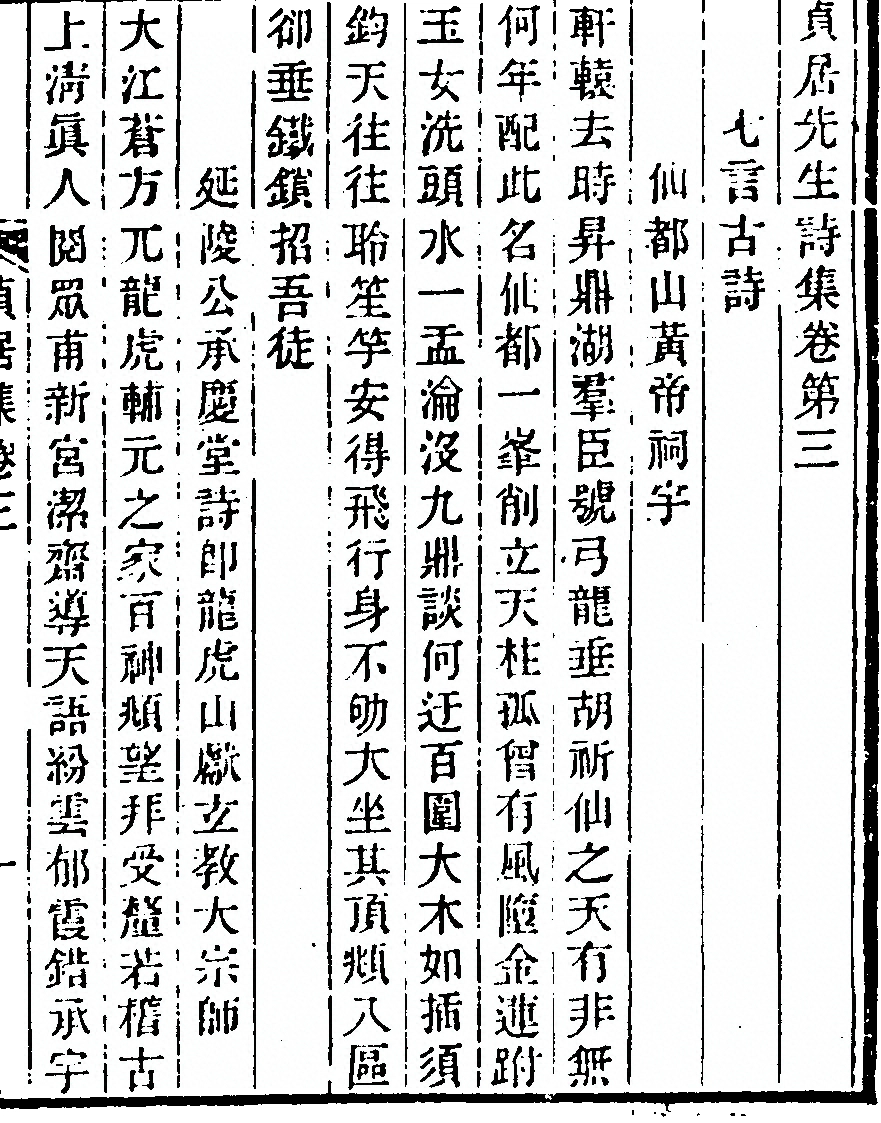 貞居先生詩集卷第三
七言古詩
仙都山黃帝祠宇
軒轅去時昇鼎湖羣臣號弓龍垂胡祈仙之天有非無
何年配此名仙都一峯削立天柱孤曾有風墮金蓮跗
玉女洗頭水一盂淪沒九鼎談何迂百圍大木如插須
鈞天往往聆笙竽安得飛行身不劬大坐其頂頫八區
卻垂鐵鎖招吾徒
延陵公承慶堂詩卽龍虎山獻立教大宗師
大江蒼方兀龍虎輔元之家百神頫望拜受釐若稽古
上淸眞人閱眾甫新宮潔齋導天語紛雲郁霞錯承宇
貞居集卷三
一